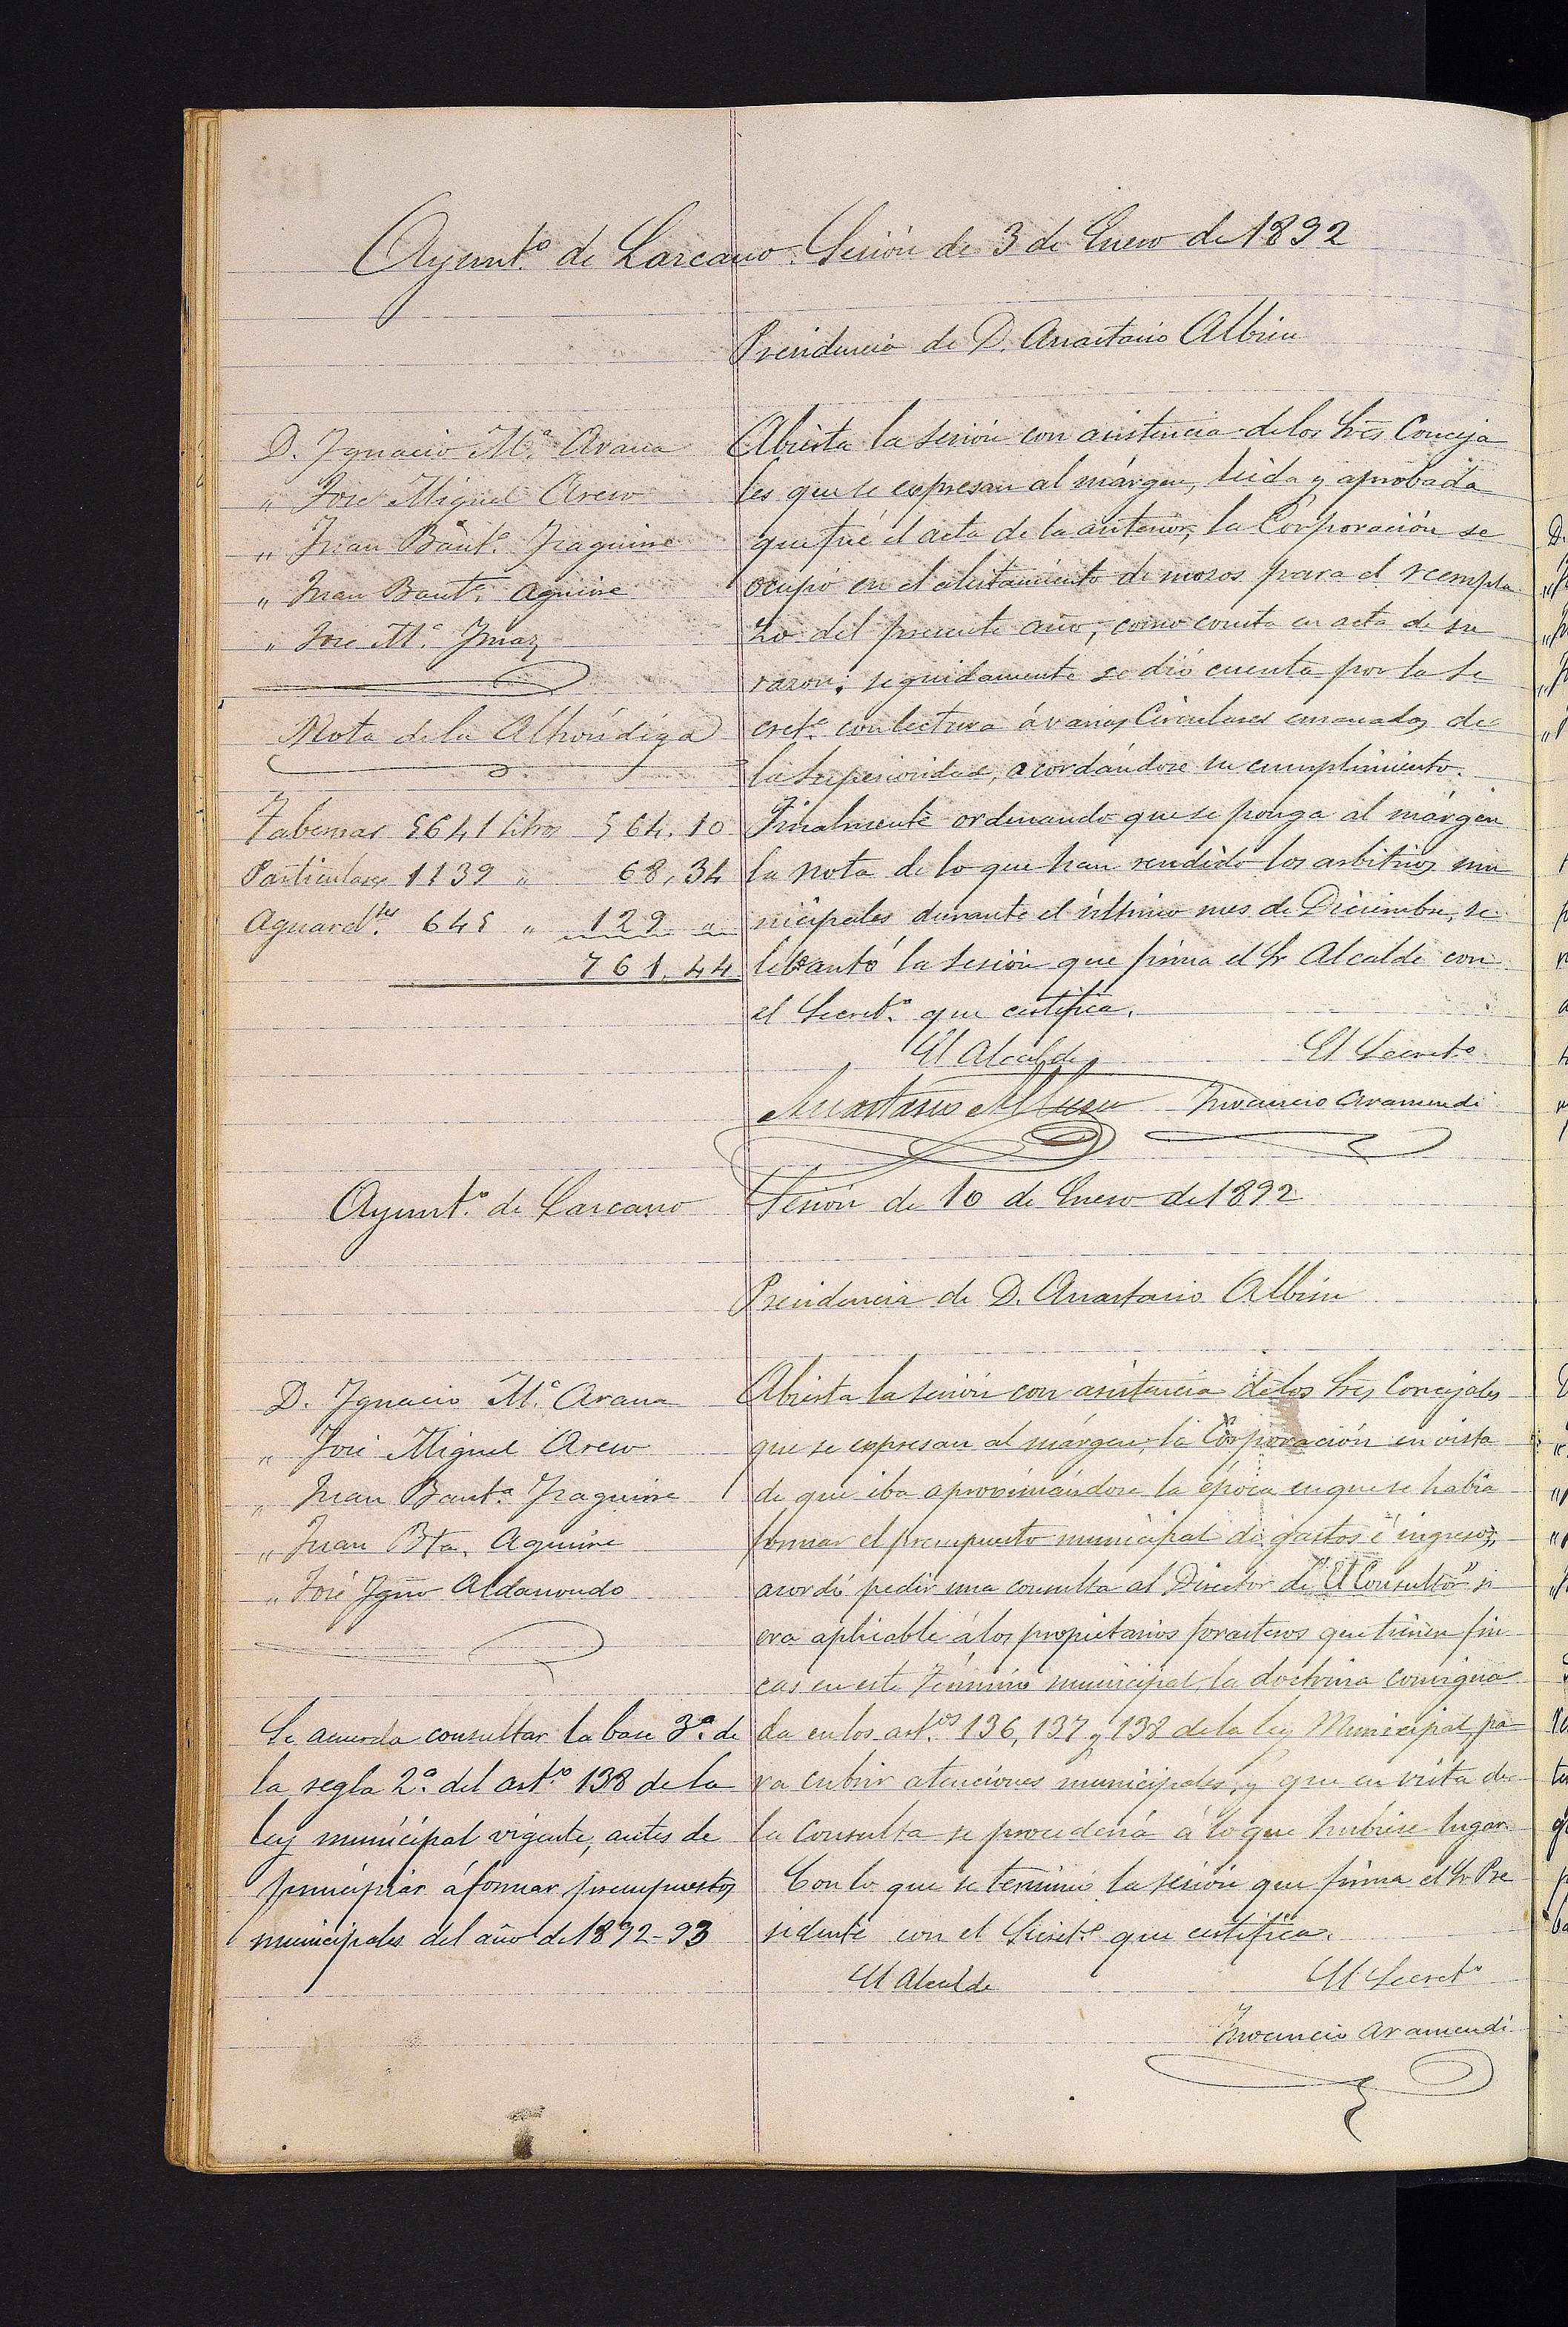 Ayunt.º de Larcano. Sesión de 3 de Enero de 1892
Presidencia de D. Anastasio Albisu
D. Ygnacio M.ª Arana
" José Miguel Areso
" Juan Baut.ª Yraguirre
" Juan Baut.ª Aguirre
" José M.ª Ymaz
Nota de la Alhóndiga
Tabernas 5641 litros 564,10
Particulares 1139 " 68,34
Aguard.tes 645 " 129 "
761,44
Abierta la sesión con asistencia de los Sres Conceja
les que se expresan al márgen, leida y aprobada
que fué el acta de la anterior, la Corporación se
ocupó en el alistamiento de mozos para el reempla
zo del presente año, como consta en acta de su
razon; seguidamente se dió cuenta por la Se
cret.ª con lectura á varias Circulares emanadas de
la Superioridad, acordándose su cumplimiento.
Finalmente ordenando que se ponga al márgen
la nota de lo que han rendido los arbitrios mu
nicipales durante el último mes de Diciembre, se
levantó la sesión que firma el Sr Alcalde con
el Secret.º que certifica.
El Alcalde El Secret.º
Anastasio Albisu Ynocencio Aramendi
Ayunt.º de Larcano Sesión de 10 de Enero de 1892
Presidencia de D. Anastasio Albisu
D. Ygnacio M.ª Arana
" José Miguel Areso
" Juan Baut.ª Yraguirre
" Juan Bta. Aguirre
" José Ygno Aldasoro
Se acuerda consultar la base 3.ª de
la regla 2.ª del art.º 138 de la
ley municipal vigente, antes de
principiar á formar presupuestos
municipales del año de 1892-93
Abierta la sesión con asistencia de los Sres Concejales
que se expresan al márgen, la Corporación en vista
de que iba aproximándose la época en que se habia
formar el presupuesto municipal de gastos é ingresos,
acordó pedir una consulta al Director de "El Consultor" si
era aplicable á los propietarios forasteros que tienen fin
cas en este término municipal, la doctrina consigna
da en los art.os 136, 137 y 138 de la ley Municipal, pa
ra cubrir atenciones municipales, y que en vista de
la Consulta se procederá á lo que hubiese lugar.
Con lo que se terminó la sesión que firma el Sr Pre
sidente con el Secret.º que certifica.
El Alcalde El Secret.º
Ynocencio Aramendi